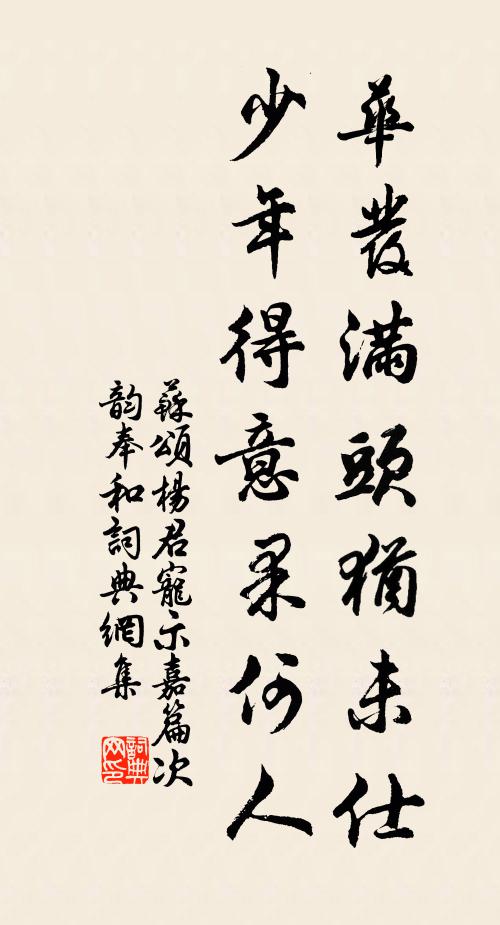 華發滿頭猶未仕
少年得意果何人
蘇頌楊君寵示嘉篇次
韵奉和詞典網集
詞典
网印